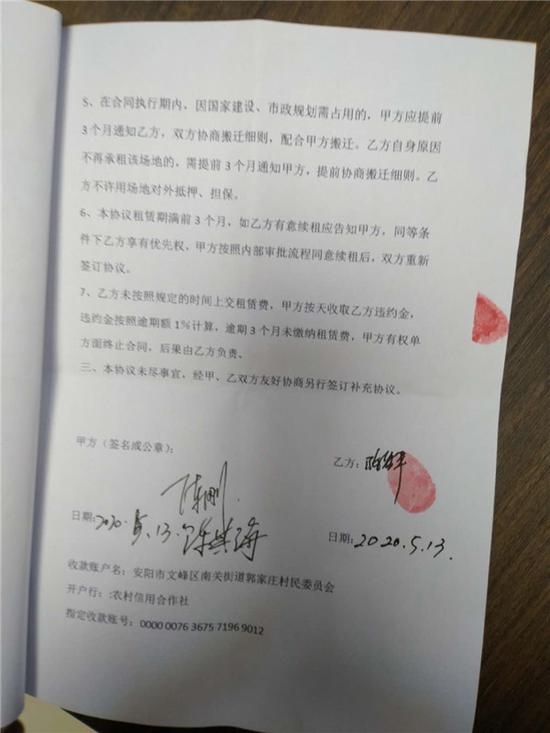 5、在合同执行期内、因国家建设、市政规划需占用的，甲方应提前
3个月通知乙方，双方协商搬迁细则，配合甲方搬迁。乙方自身原因
不再承租该场地的，需提前3个月通知甲方，提前协商搬迁细则。乙
方不许用场地对外抵押、担保。
6、本协议租赁期满前3个月，如乙方有意续租应告知甲方，同等条
件下乙方享有优先权，甲方按照内部审批流程同意续租后，双方重新
签订协议。
7、乙方未按照规定的时间上交租赁费，甲方按天收取乙方违约金，
违约金按照逾期额1%计算，逾期3个月未缴纳租赁费，甲方有权单
方面终止合同，后果由乙方负责、
三、本协议未尽事宜，经甲、乙双方友好协商另行签订补充协议。
甲方（签名或公章）：
乙方：
日期：2020.5.13.
日期：2020.5.13.
收款账户名：安阳市文峰区南关街道郭家庄村民委员会
开户行：:农村信用合作社
指定收款账号：0000 0076 3675 7196 9012